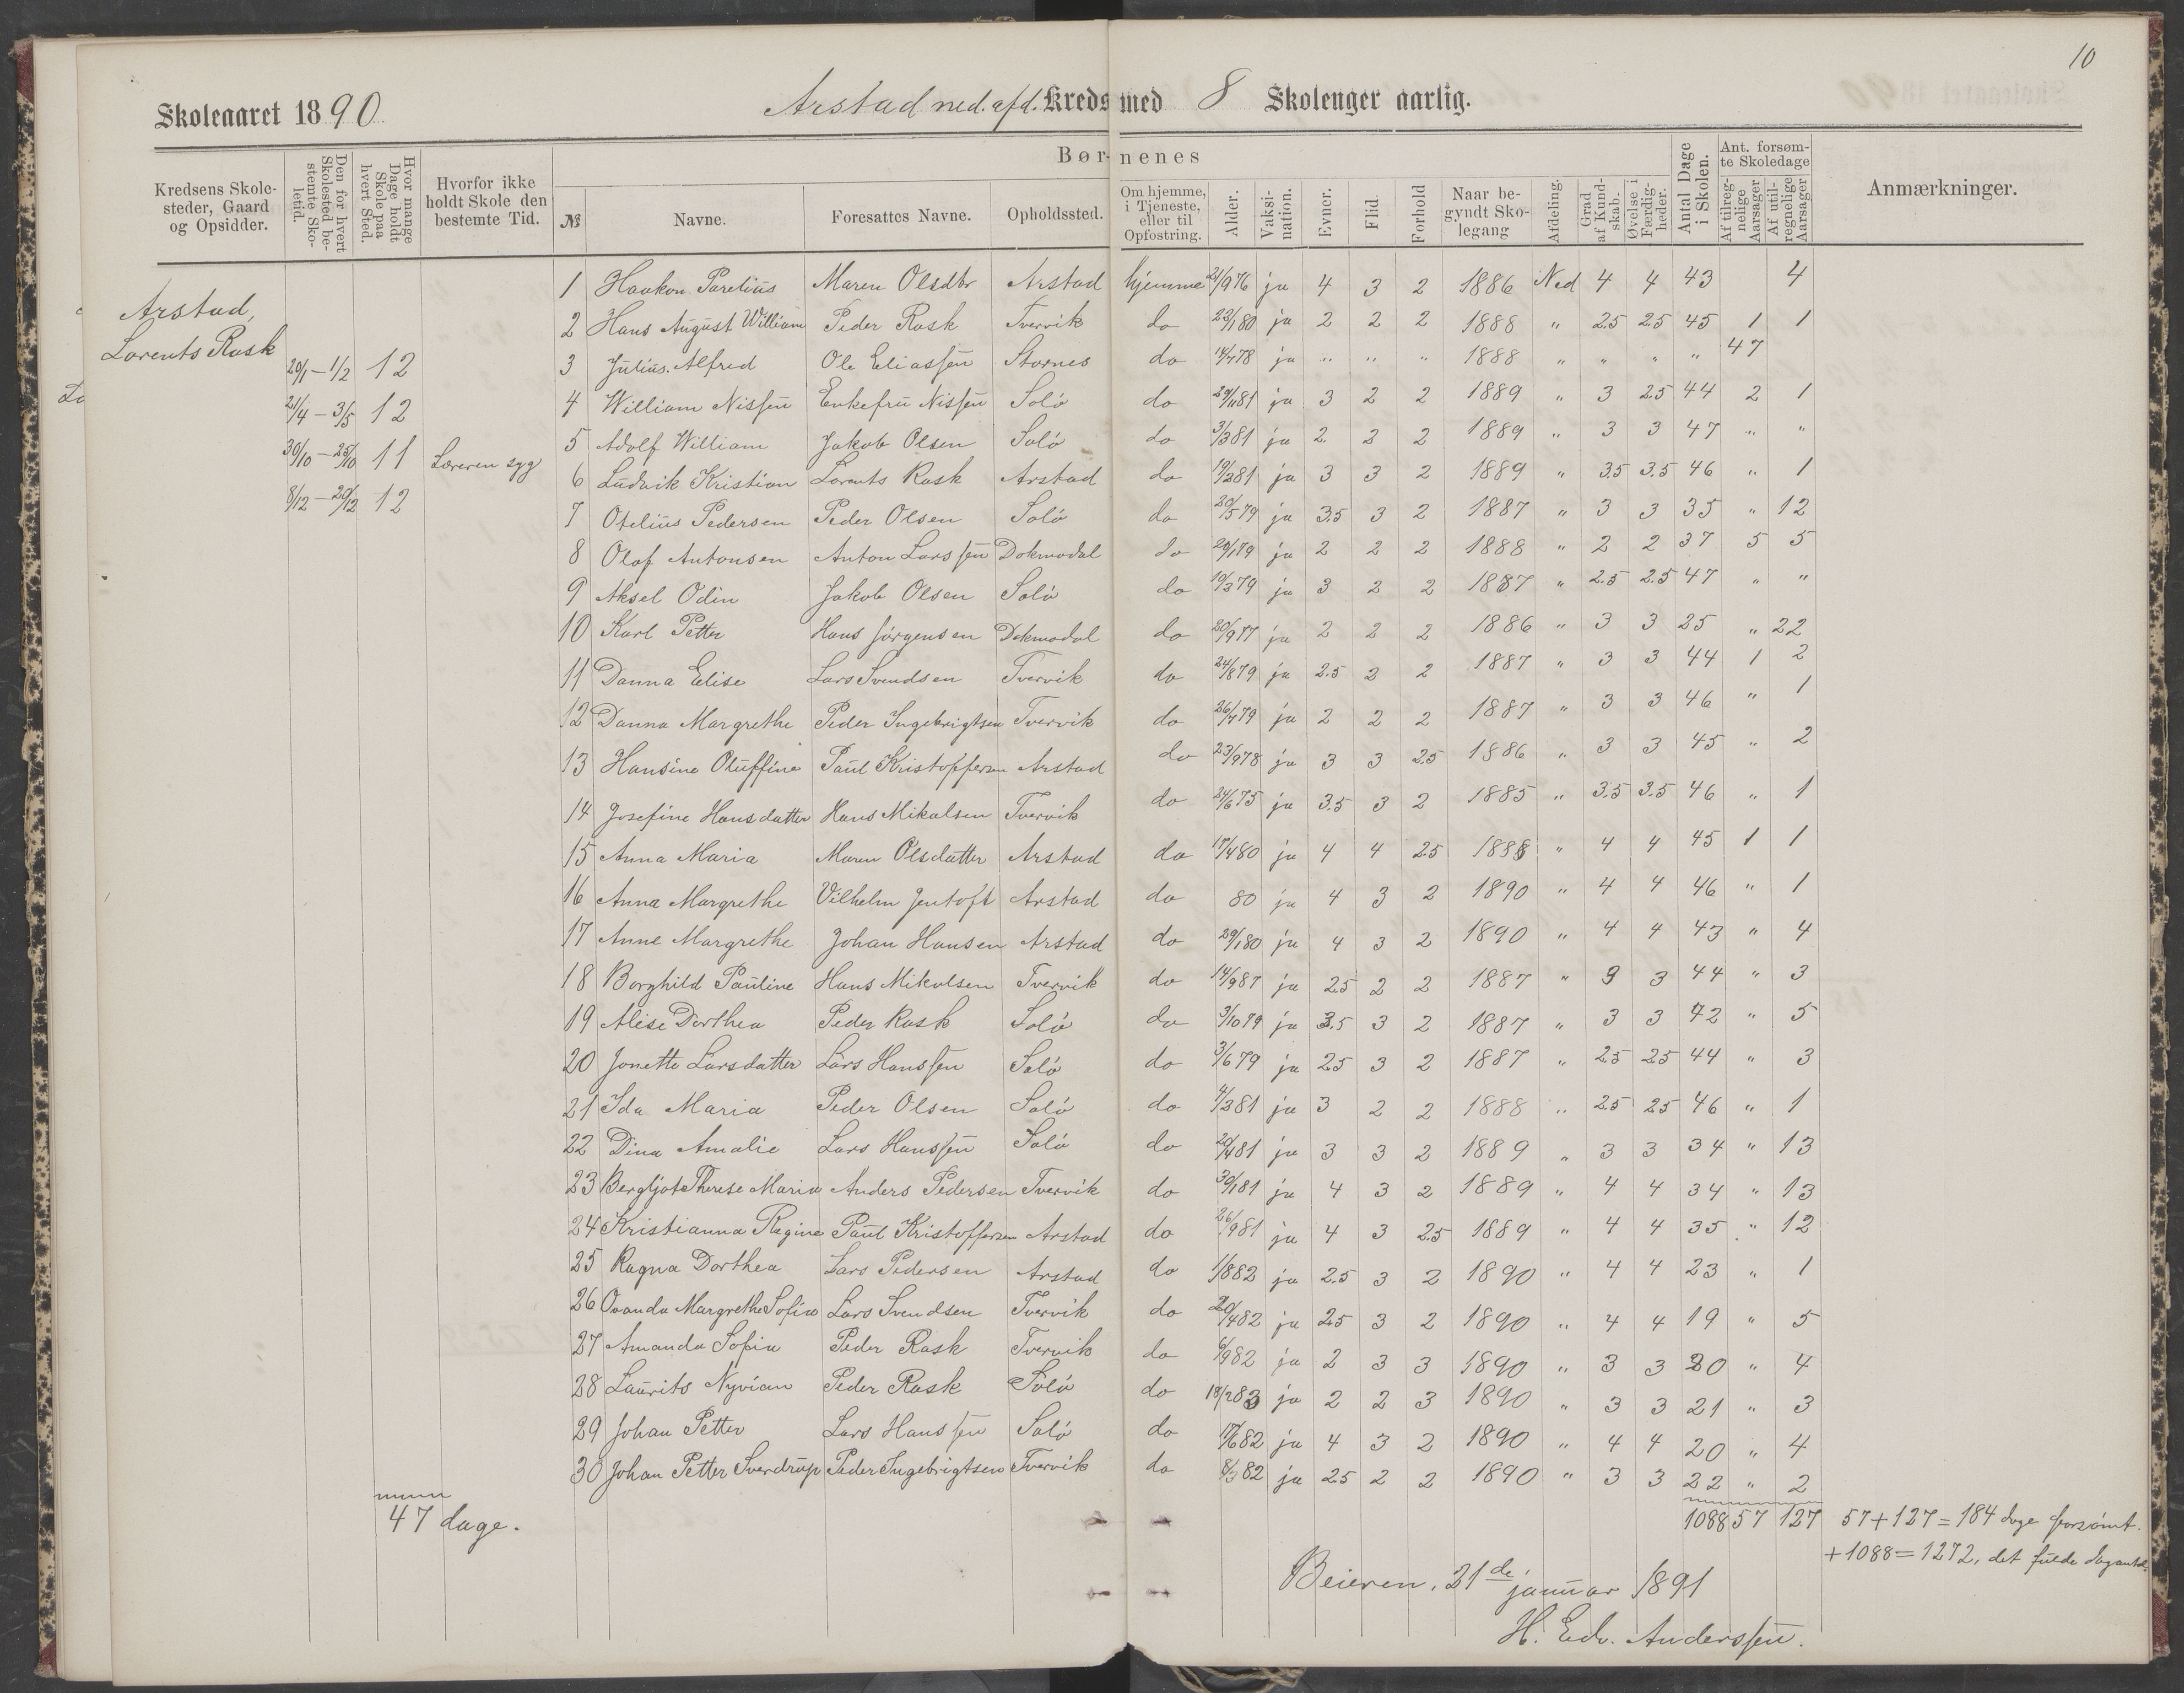 10
Skoleaaret 1890 Arstad ned. afd. Kreds med 8 Skolenger aarlig.
Kredsens Skolesteder, Gaard og Opsidder.
Den for hvert Skolested bestemte Skoletid.
Hvor mange Dage holdt Skole paa hvert Sted.
Hvorfor ikke holdt Skole den bestemte Tid.
Børnenes
№ Navne. Foresattes Navne. Opholdssted.
Om hjemme, i Tjeneste, eller til Opfostring.
Alder. Vaksination. Evner. Flid. Forhold
Naar begyndt Skolegang
Afdeling. Grad af Kundskab. Øvelse i Færdigheder. Antal Dage i Skolen.
Ant. forsømte Skoledage
Af tilregnelige Aarsager Af utilregnelige Aarsager
Anmærkninger.
Arstad,
Lorents Rask
20/1 – 1/2 12
21/4 – 3/5 12
30/10 – 25/10 11 Læreren syg
8/12 – 20/12 12
1 Haakon Parelius Maren Olsdtr Arstad hjemme 21/9 76 ja 4 3 2 1886 Ned 4 4 43 4
2 Hans August William Peder Rask Tvervik do 22/1 80 ja 2 2 2 1888 " 2.5 2.5 45 1 1
3 Julius. Alfred Ole Eliassen Stornes do 14/7 78 ja " " " 1888 " " " " 47
4 William Nissen Enkefru Nissen Solø do 29/11 81 ja 3 2 2 1889 " 3 2.5 44 2 1
5 Adolf William Jakob Olsen Solø do 3/3 81 ja 2. 2 2 1889 " 3 3 47 " "
6 Ludvik Kristian Lorents Rask Arstad do 19/2 81 ja 3 3 2 1889 " 3.5 3.5 46 " 1
7 Otelius Pedersen Peder Olsen Solø do 20/5 79 ja 3.5 3 2 1887 " 3 3 35 " 12
8 Olaf Antonsen Anton Larssen Dokmodal do 20/1 79 ja 2 2 2 1888 " 2 2 37 5 5
9 Aksel Odin Jakob Olsen Solø do 10/3 79 ja 3 2 2 1887 " 2.5 2.5 47 " "
10 Karl Petter Hans Jørgensen Dokmodal do 20/9 77 ja 2 2 2 1886 " 3 3 25 " 22
11 Danna Elise Lars Svendsen Tvervik do 24/8 79 ja 2.5 2 2 1887 " 3 3 44 1 2
12 Danna Margrethe Peder Ingebrigtsen Tvervik do 26/7 79 ja 2 2 2 1887 " 3 3 46 " 1
13 Hansine Oluffine Paul Kristoffersen Arstad do 23/9 78 ja 3 3 2.5 1886 " 3 3 45 " 2
14 Josefine Hansdatter Hans Mikalsen Tvervik do 24/6 75 ja 3.5 3 2 1885 " 3.5 3.5 46 " 1
15 Anna Maria Maren Olsdatter Arstad do 17/4 80 ja 4 4 2.5 1888 " 4 4 45 1 1
16 Anna Margrethe Vilhelm Jentoft Arstad do 80 ja 4 3 2 1890 " 4 4 46 " 1
17 Anne Margrethe Johan Hansen Arstad do 29/1 80 ja 4 3 2 1890 " 4 4 43 " 4
18 Borghild Pauline Hans Mikalsen Tvervik do 14/9 87 ja 2.5 2 2 1887 " 3 3 44 " 3
19 Alise Dorthea Peder Rask Solø do 3/10 79 ja 3.5 3 2 1887 " 3 3 42 " 5
20 Jonette Larsdatter Lars Hanssen Solø do 3/6 79 ja 2.5 3 2 1887 " 2.5 2.5 44 " 3
21 Ida Maria Peder Olsen Solø do 4/3 81 ja 3 2 2 1888 " 2.5 2.5 46 " 1
22 Dina Amalie Lars Hanssen Solø do 20/4 81 ja 3 3 2 1889 " 3 3 34 " 13
23 Bergljot Therese Maria Anders Pedersen Tvervik do 30/1 81 ja 4 3 2 1889 " 4 4 34 " 13
24 Kristianna Regine Paul Kristoffersen Arstad do 26/9 81 ja 4 3 2.5 1889 " 4 4 35 " 12
25 Ragna Dorthea Lars Pedersen Arstad do 1/8 82 ja 2.5 3 2 1890 " 4 4 23 " 1
26 Ovanda Margrethe Sofia Lars Svendsen Tvervik do 20/4 82 ja 2.5 3 2 1890 " 4 4 19 " 5
27 Amanda Sofia Peder Rask Tvervik do 6/9 82 ja 2 3 3 1890 " 3 3 20 " 4
28 Laurits Nyvian Peder Rask Solø do 18/2 83 ja 2 2 3 1890 " 3 3 21 " 3
29 Johan Petter Lars Hanssen Solø do 17/6 82 ja 4 3 2 1890 " 4 4 20 " 4
30 Johan Petter Sverdrup Peder Ingebrigtsen Tvervik do 8/3 82 ja 2.5 2 2 1890 " 3 3 22 " 2
47 dage. 1088 57 127 57 + 127 = 184 dage forsømt.
+ 1088 = 1272, det fulde dagantal.
Beieren, 21de januar 1891
H. Edv. Anderssen.